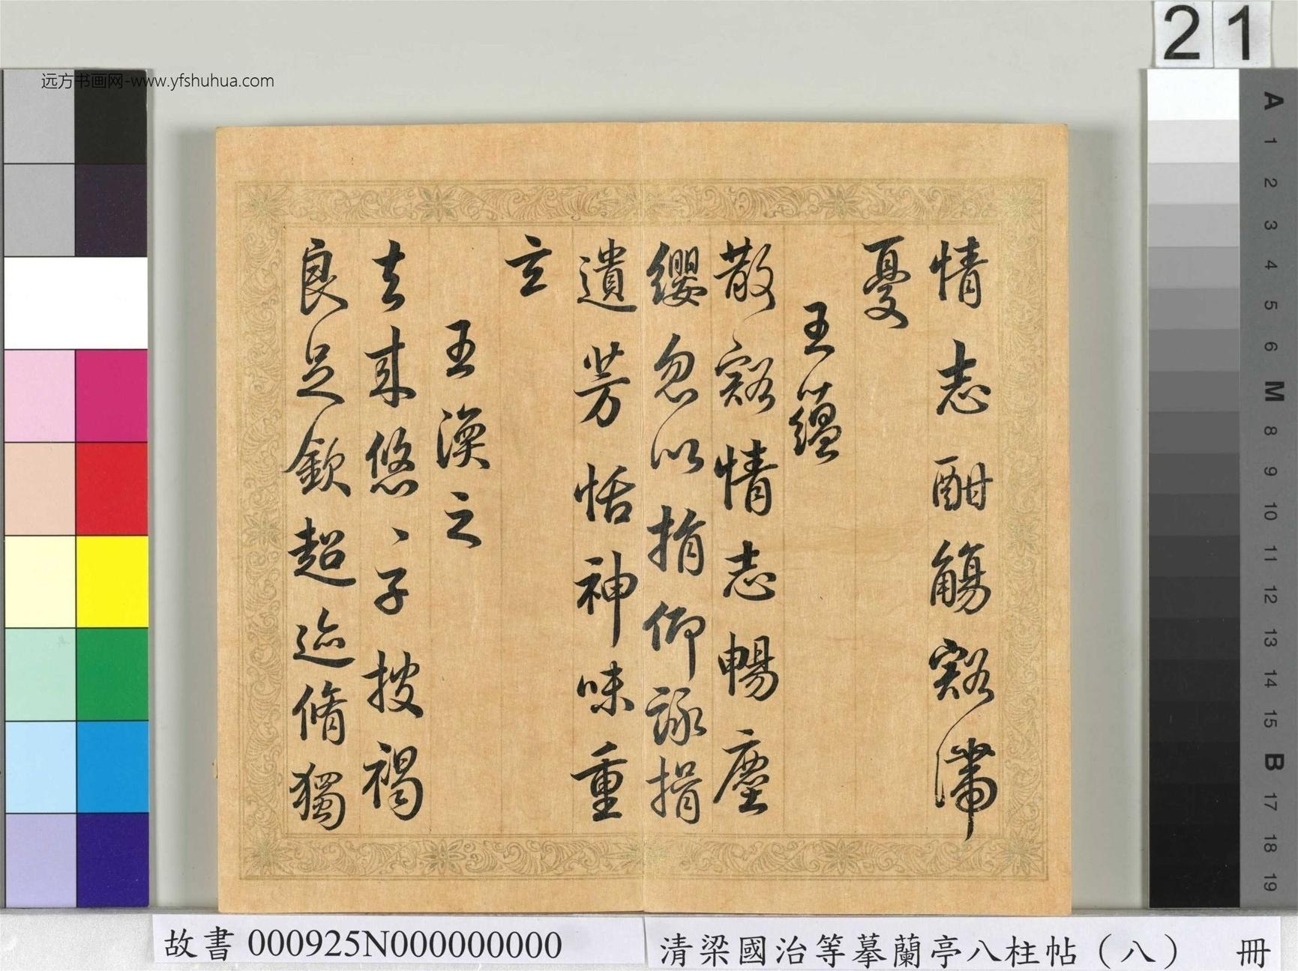 21
远方书画网-www.yfshuhua.com
情志酣觴豁滯
憂
王蘊
散豁情志暢塵
纓忽以捐仰詠挹
遺芳怡神味重
玄
王渙之
去來悠、子披褐
良足欽超迹脩獨
A
1
2
3
4
5
6
M
8
9
10
11
12
13
14
15
B
17
18
19
故書 000925N000000000
清梁國治等摹蘭亭八柱帖（八） 冊